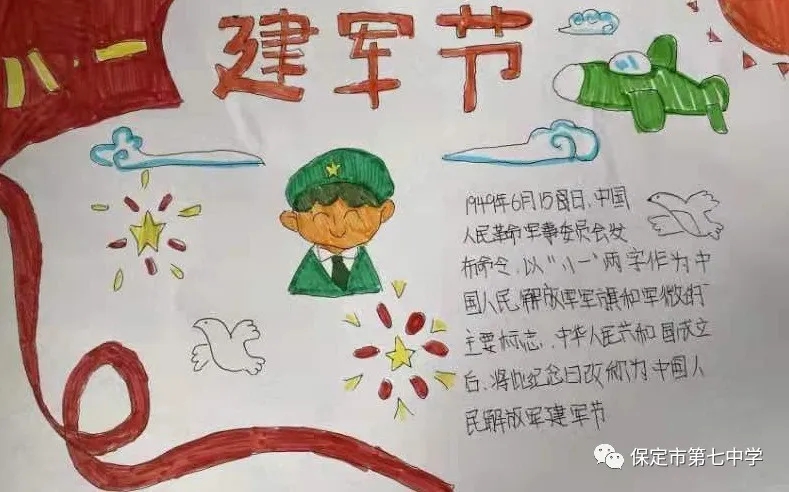 八一
建军节
1949年6月15日,中国
人民革命军事委员会发
布命令,以"八一"两字作为中
国人民解放军军旗和军徽的
主要标志.中华人民共和国成立
后,将此纪念日改称为中国人
民解放军建军节
保定市第七中学